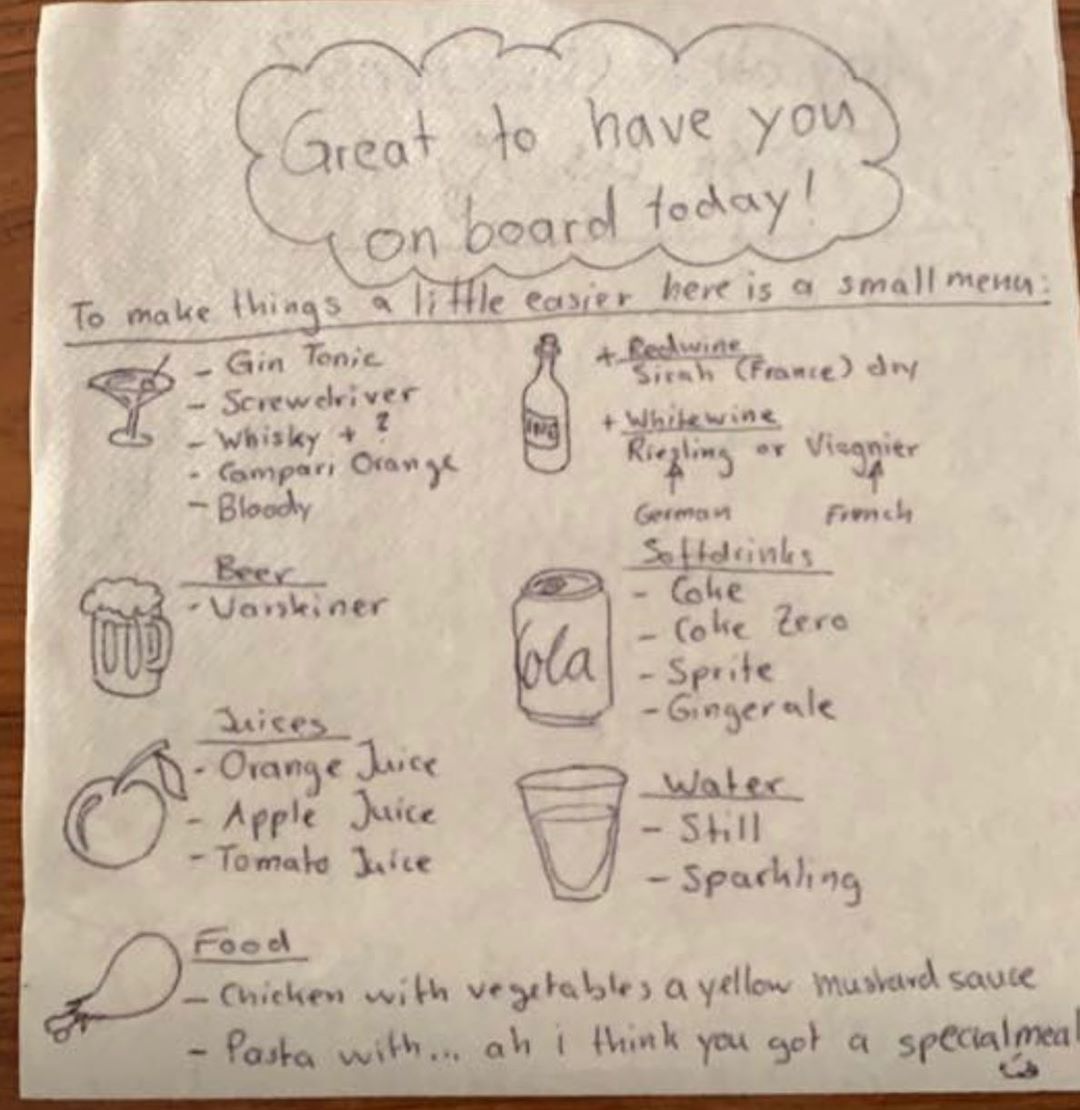 Great to have you
on board today!
To make things a little easier here is a small menu:
- Gin Tonic
- Screwdriver
- Whisky + ?
- Campari Orange
- Bloody
+ Redwine
Sirah (France) dry
+ Whitewine
Riezling or Viognier
German French
Beer
- Varskiner
Softdrinks
- Coke
- Coke Zero
- Sprite
- Gingerale
Cola
Juices
- Orange Juice
- Apple Juice
- Tomato Juice
Water
- Still
- Sparkling
Food
- Chicken with vegetables a yellow mustard sauce
- Pasta with... ah i think you got a specialmeal